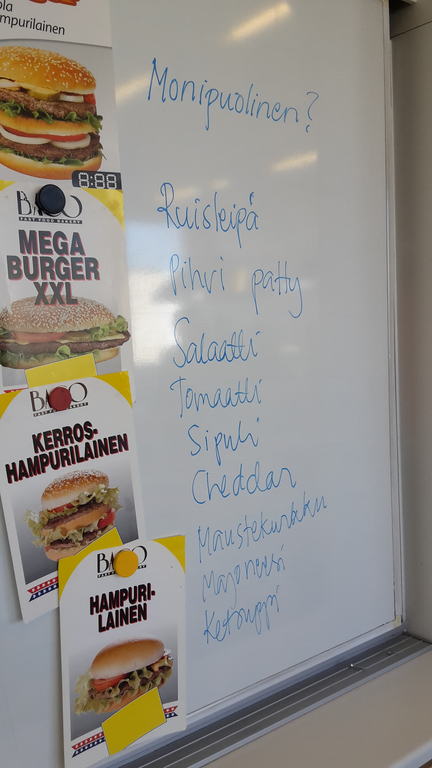 ola
mpurilainen
8:88
BACO
FAST FOOD BAKERY
MEGA
BURGER
XXL
BACO
KERROS-
HAMPURILAINEN
BACO
HAMPURI-
LAINEN
Monipuolinen?
Ruisleipä
Pihvi patty
Salaatti
Tomaatti
Sipuli
Cheddar
Maustekurkku
Majoneesi
Ketsuppi